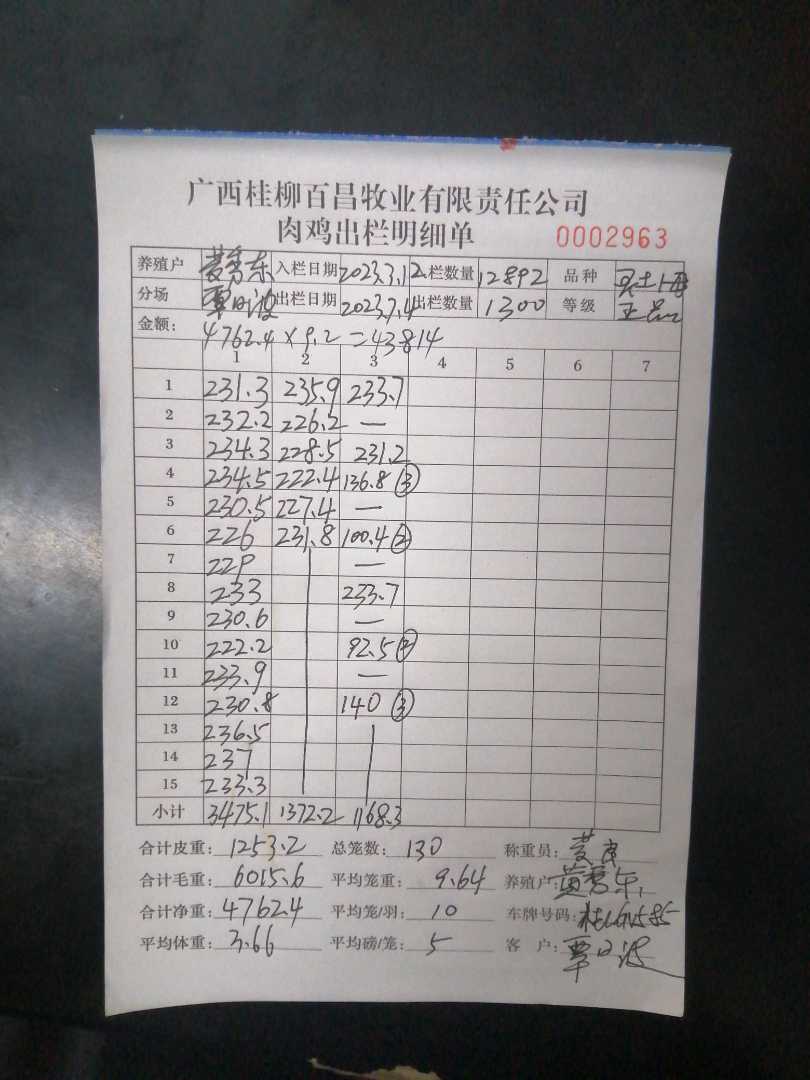 广西桂柳百昌牧业有限责任公司
肉鸡出栏明细单 0002963
养殖户 入栏日期 2023.3.12 入栏数量 12892 品种
分场 覃日波 出栏日期 2023.7.4 出栏数量 1300 等级 正品
金额: 4762.4×9.2=43814
1 2 3 4 5 6 7
1 231.3 235.9 233.7
2 232.2 226.2 —
3 234.3 228.5 231.2
4 234.5 222.4 136.8 ③
5 230.5 227.4 —
6 226 231.8 100.4 ②
7 229 —
8 233 233.7
9 230.6 —
10 222.2 92.5 ②
11 233.9 —
12 230.8 140 ③
13 236.5
14 237
15 233.3
小计 3475.1 1372.2 1168.3
合计皮重: 1253.2 总笼数: 130 称重员:
合计毛重: 6015.6 平均笼重: 9.64 养殖户:
合计净重: 4762.4 平均笼/羽: 10 车牌号码:
平均体重: 3.66 平均磅/笼: 5 客户: 覃日波